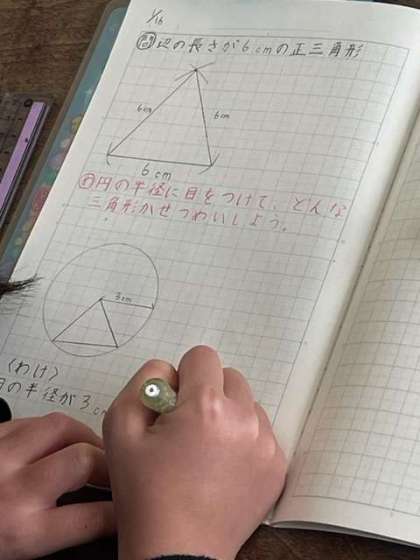 1/16
問 辺の長さが6cmの正三角形
6cm
6cm
6cm
め 円の半径に目をつけて、どんな
三角形かせつめいしよう。
3cm
〈わけ〉
円の半径が3cm